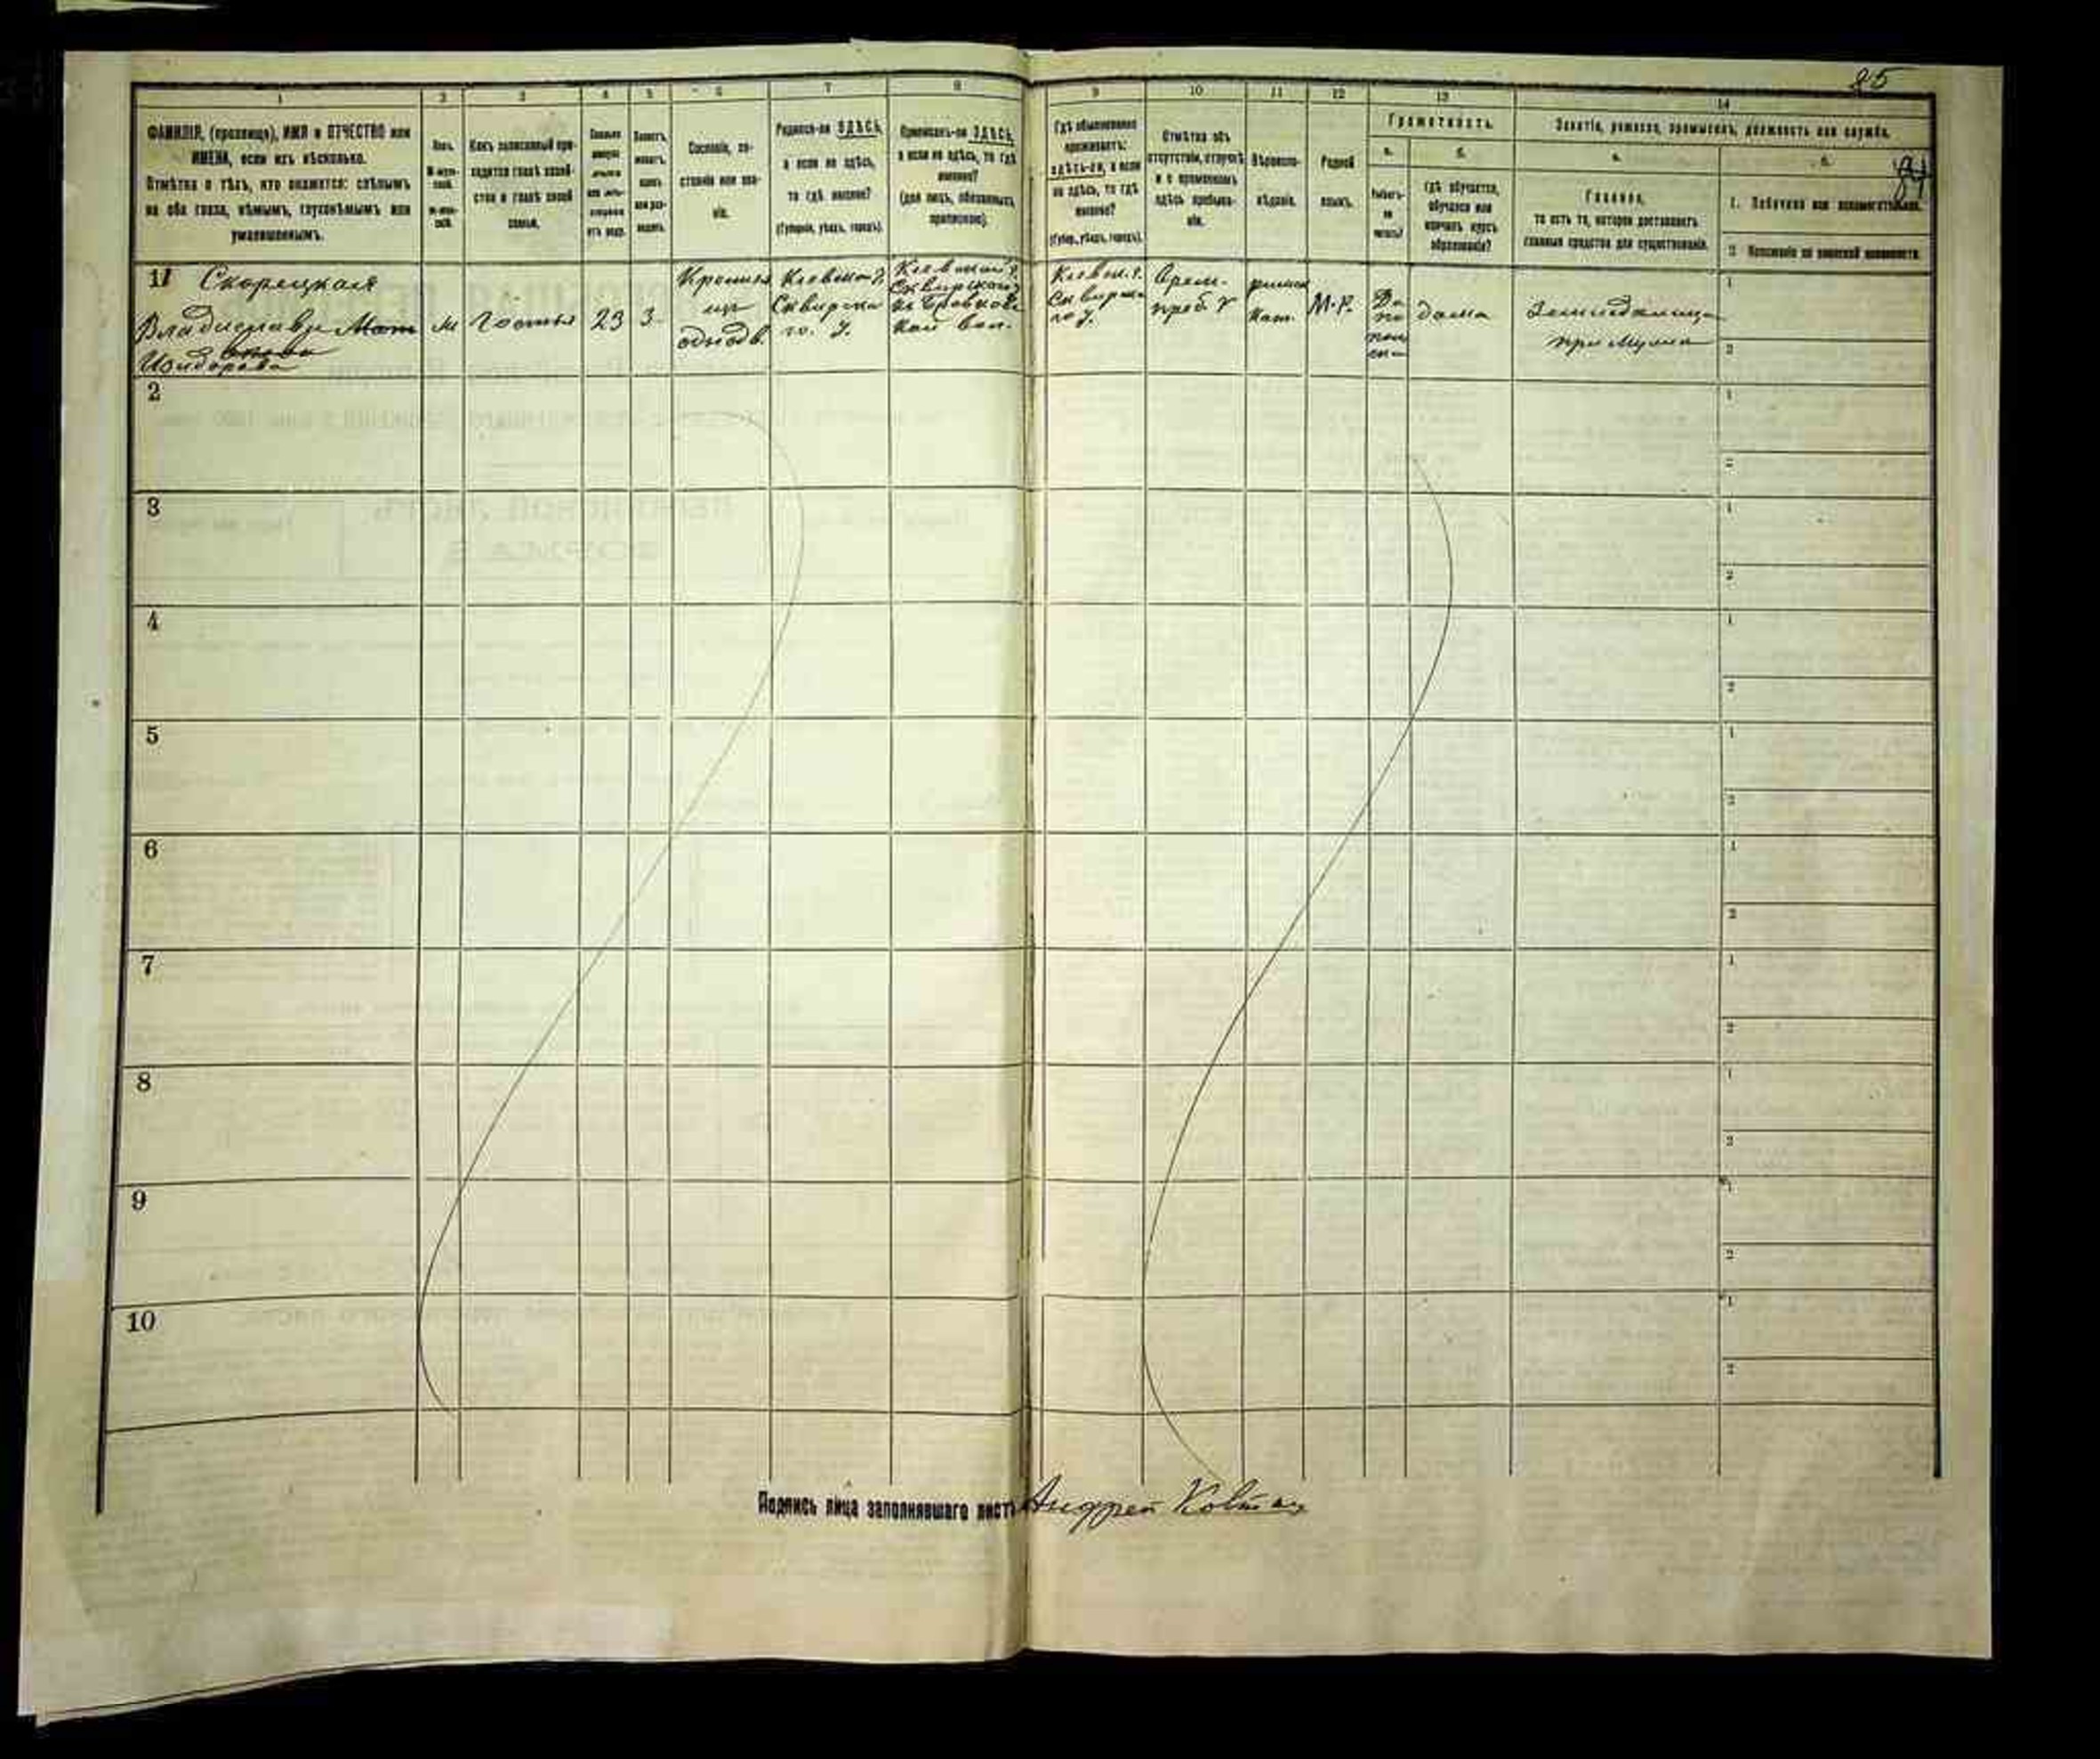 25
1 2 3 4 5 6 7 8 9 10 11 12 13 14
ФАМИЛІЯ, (прозвище), ИМЯ и ОТЧЕСТВО или
ИМЕНА, если ихъ нѣсколько.
Отмѣтка о тѣхъ, кто окажется: слѣпымъ
на оба глаза, нѣмымъ, глухонѣмымъ или
умалишеннымъ.
Полъ.
М-муж-
ской.
Ж-жен-
скій.
Какъ записанный при-
ходится главѣ хозяй-
ства и главѣ своей
семьи.
Сколько
минуло
лѣтъ
или мѣ-
сяцевъ
отъ роду.
Холостъ,
женатъ,
вдовъ
или раз-
веденъ.
Сословіе, со-
стояніе или зва-
ніе.
Родился-ли ЗДѢСЬ,
а если не здѣсь,
то гдѣ именно?
(Губернія, уѣздъ, городъ).
Приписанъ-ли ЗДѢСЬ,
а если не здѣсь, то гдѣ
именно?
(для лицъ, обязанныхъ
припискою).
Гдѣ обыкновенно
проживаетъ:
здѣсь-ли, а если
не здѣсь, то гдѣ
именно?
(Губер., уѣздъ, городъ).
Отмѣтка объ
отсутствіи, отлучкѣ
и о временномъ
здѣсь пребыва-
ніи.
Вѣроиспо-
вѣданіе.
Родной
языкъ.
Грамотность.
а. б.
Умѣетъ-
ли
читать?
гдѣ обучается,
обучался или
кончилъ курсъ
образованія?
Занятіе, ремесло, промыселъ, должность или служба.
а. б.
Главное,
то есть то, которое доставляетъ
главныя средства для существованія.
1. Побочное или вспомогательное.
2. Положеніе по воинской повинности.
1 Скорецкая
Владислава Мат
Изидорова
Гостья
23
3
однодв.
Кіевской г.
Сквирска
го у.
Кіевской г.
Сквирского
кой вол.
Кіевск. г.
Сквирска
го у.
Врем.
преб.
римск
Кат.
М.Р.
Да
по
дома
при мужѣ
1
2
2
1
2
3
1
2
4
1
2
5
1
2
6
1
2
7
1
2
8
1
2
9
1
2
10
1
2
Подпись лица заполнявшаго листъ Андрей